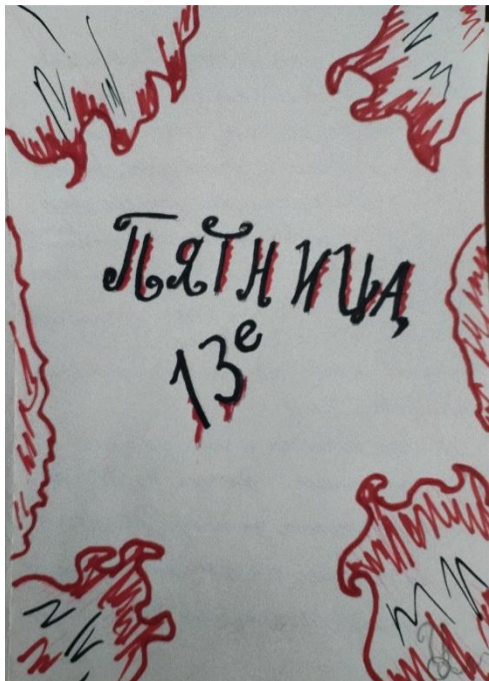 ПЯТНИЦА
13е